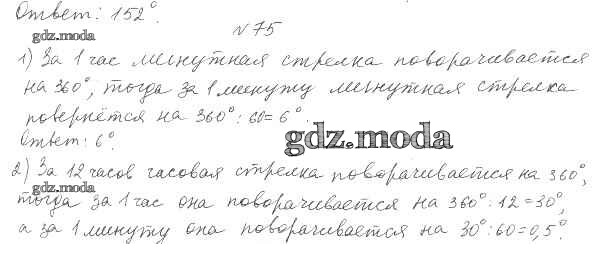 Ответ: 152°.
gdz.moda
№75
1) За 1 час минутная стрелка поворачивается
на 360°, тогда за 1 минуту минутная стрелка
повернётся на 360° : 60 = 6°.
Ответ: 6°.
gdz.moda
2) За 12 часов часовая стрелка поворачивается на 360°,
gdz.moda
тогда за 1 час она поворачивается на 360° : 12 = 30°,
а за 1 минуту она поворачивается на 30° : 60 = 0,5°.